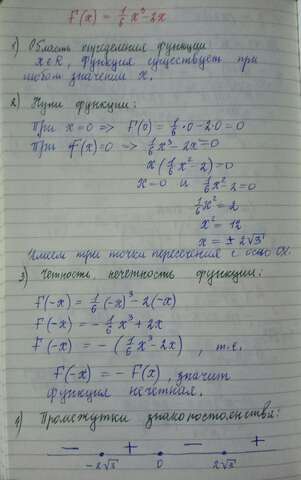 F(x) = 1/6 x³ - 2x
1) Область определения функции
x ∈ R, Функция существует при
любом значении x.
2) Нули функции:
При x=0 => F(0) = 1/6 · 0 - 2·0 = 0
При F(x)=0 => 1/6 x³ - 2x = 0
x (1/6 x² - 2) = 0
x = 0 и 1/6 x² - 2 = 0
1/6 x² = 2
x² = 12
x = ± 2√3
Имеем три точки пересечения с осью OX.
3) Четность, нечетность функции:
F(-x) = 1/6 (-x)³ - 2(-x)
F(-x) = - 1/6 x³ + 2x
F(-x) = - (1/6 x³ - 2x) , т.е.
F(-x) = - F(x), значит
функция нечетная.
4) Промежутки знакопостоянства:
- + - +
-2√3 0 2√3